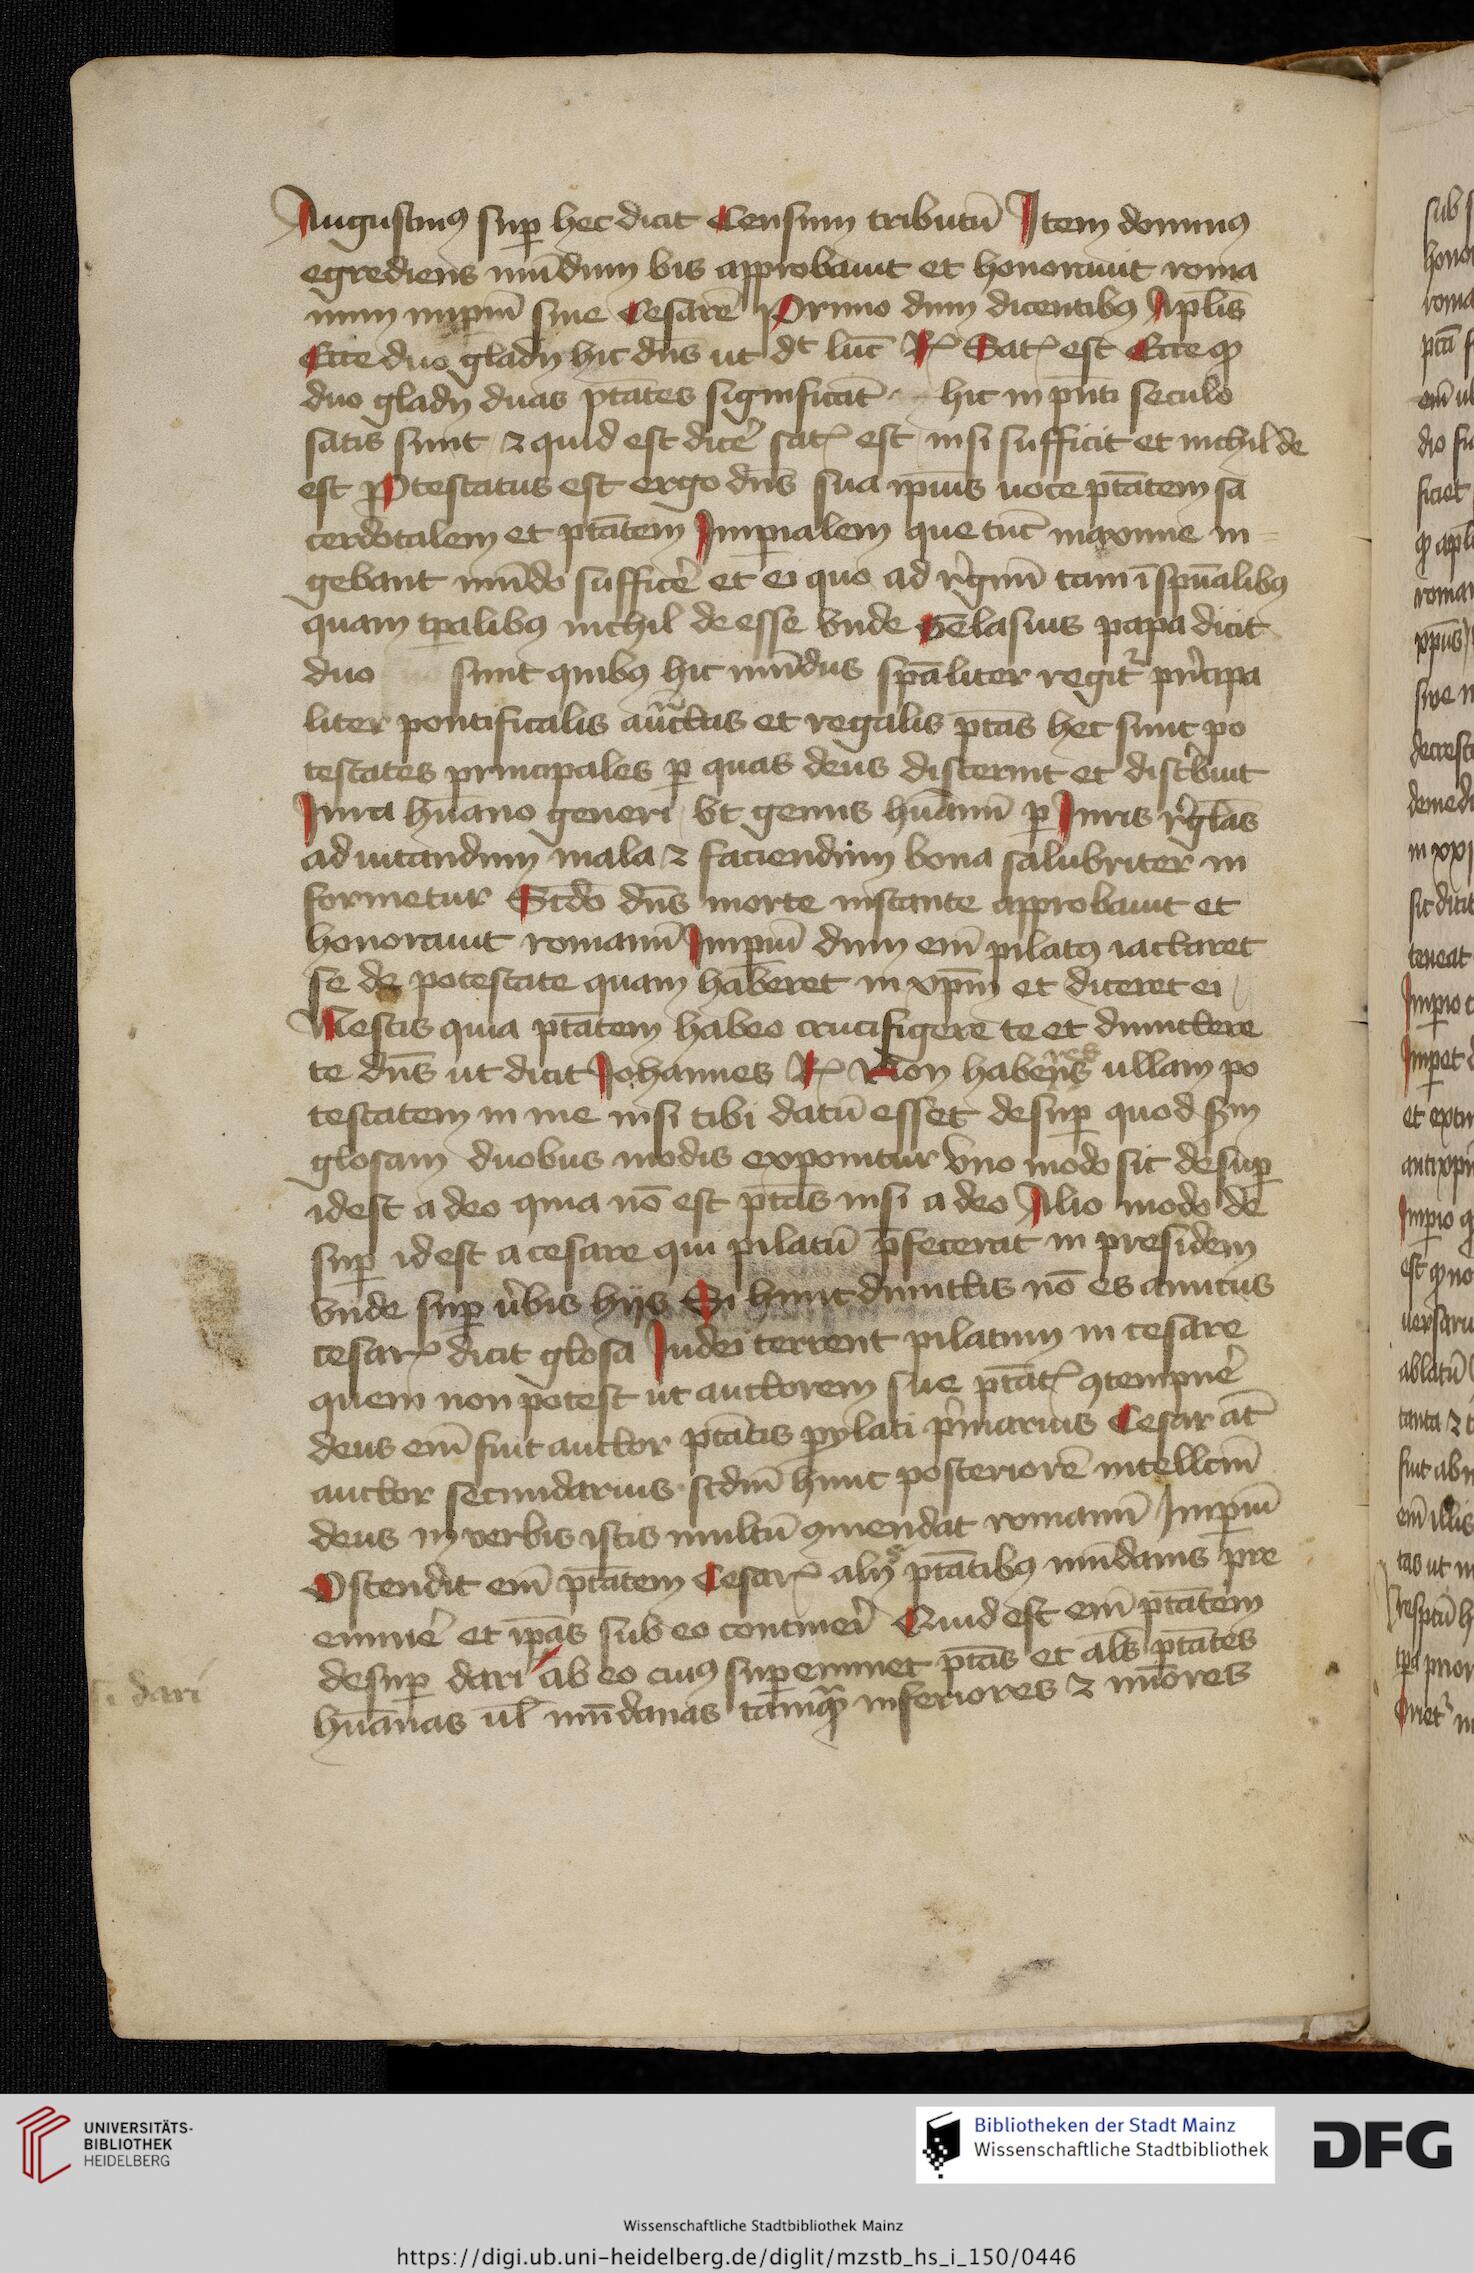 Augustinꝰ suꝑ hec dicit Censum tributū Item dominus
egrediens mūdum bis approbauit et honorauit roma
num imꝑiū siue Cesarē Primo dum dicentibꝰ Apl̄is
Ecce duo gladij hic dn̄s ut dt luc̄ Rꝭ Satꝭ est Ecce ꝙ
duo gladij duas ptātes significāt hic in pn̄ti seculo
satis sunt ⁊ quid est dicēˀ satꝭ est nisi sufficit et nichil de
est Protestatus est ergo dn̄s sua ip̄ius uoce ptātem sa
cerdotalem et ptātem Imꝑialem que tūc maxime in
gebant mūdo sufficēˀ et ei quo ad rˀgim̄ tam ī spūalibꝰ
quam tꝑalibꝰ nichil de esse Vnde Gelasius papa dicit
duo sunt quibꝰ hic mūdus sp̄aliter regitˀ prˀcipa
liter pontificalis auc̄tas et regalis ptās hec sunt po
testates principales ꝑ quas deus discernit et distˀbuit
Iura hūano generi Vt genus hūanū ꝑ Iuris rˀglās
ad uitandum mala ⁊ faciendum bona salubriter in
formetur Scd̄o dn̄s morte instante approbauit et
honorauit romanū Imꝑiū dum em̄ pilatꝰ iactaret
se de potestate quam haberet in xp̄m et diceret ei
Nescis quia ptātem habeo crucifigere te et dimittere
te dn̄s ut dicit Johannes Rꝭ Non haberes ullam po
testatem in me nisi tibi datū esset desuꝑ quod scd̄m
glosam duobus modis exponitur Vno modo sic desuꝑ
idest a deo quia nō est ptās nisi a deo Alio modo de
suꝑ idest a cesare qui pilatū p̄fecerat in presidem
Vnde suꝑ uˀbis hijs Si hunc dimittis nō es amicus
cesarꝭ dicit glosa Iudei terrent pilatum in cesare
quem non potest ut auctorem sue ptātꝭ ꝯtempnēˀ
deus em̄ fuit auctor ptātis pylati prˀmarius Cesar aūt
auctor secundarius scdm̄ hunc posteriorē intellcm̄
deus in verbis istis multū ꝯmendat romanū Imꝑiū
Ostendit em̄ ptātem Cesarꝭ alijs ptātibꝰ mūdanis pre
eminēˀ et ip̄as sub eo contineriˀ Quid est em̄ ptātem
desuꝑ dari ab eo cuiꝰ suꝑeminet ptās et al̄s ptātes
hūanas ul̄ mūdanas tamq̄ inferiores ⁊ mīores
si dari
UNIVERSITÄTS-
BIBLIOTHEK
HEIDELBERG
Bibliotheken der Stadt Mainz
Wissenschaftliche Stadtbibliothek
DFG
Wissenschaftliche Stadtbibliothek Mainz
https://digi.ub.uni-heidelberg.de/diglit/mzstb_hs_i_150/0446